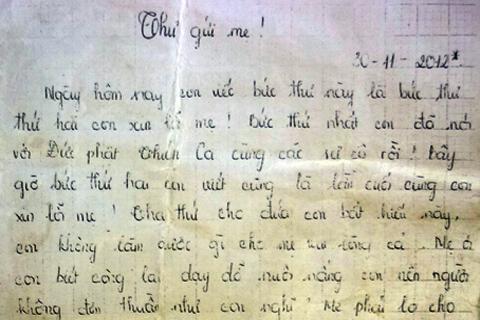 Thư gửi mẹ !
20-11-2012*
Ngày hôm nay con viết bức thư này là bức thư
thứ hai con xin lỗi mẹ ! Bức thư nhất con đã nói
với Đức phật Thích Ca cùng các sư cô rồi ! bây
giờ bức thư hai con viết cũng là lần cuối cùng con
xin lỗi mẹ ! Tha thứ cho đứa con bất hiếu này,
con không làm được gì cho mẹ vui lòng cả. Mẹ ơi
con biết công lao dạy dỗ nuôi nấng con nên người
không đơn thuần như con nghĩ ! Mẹ phải lo cho